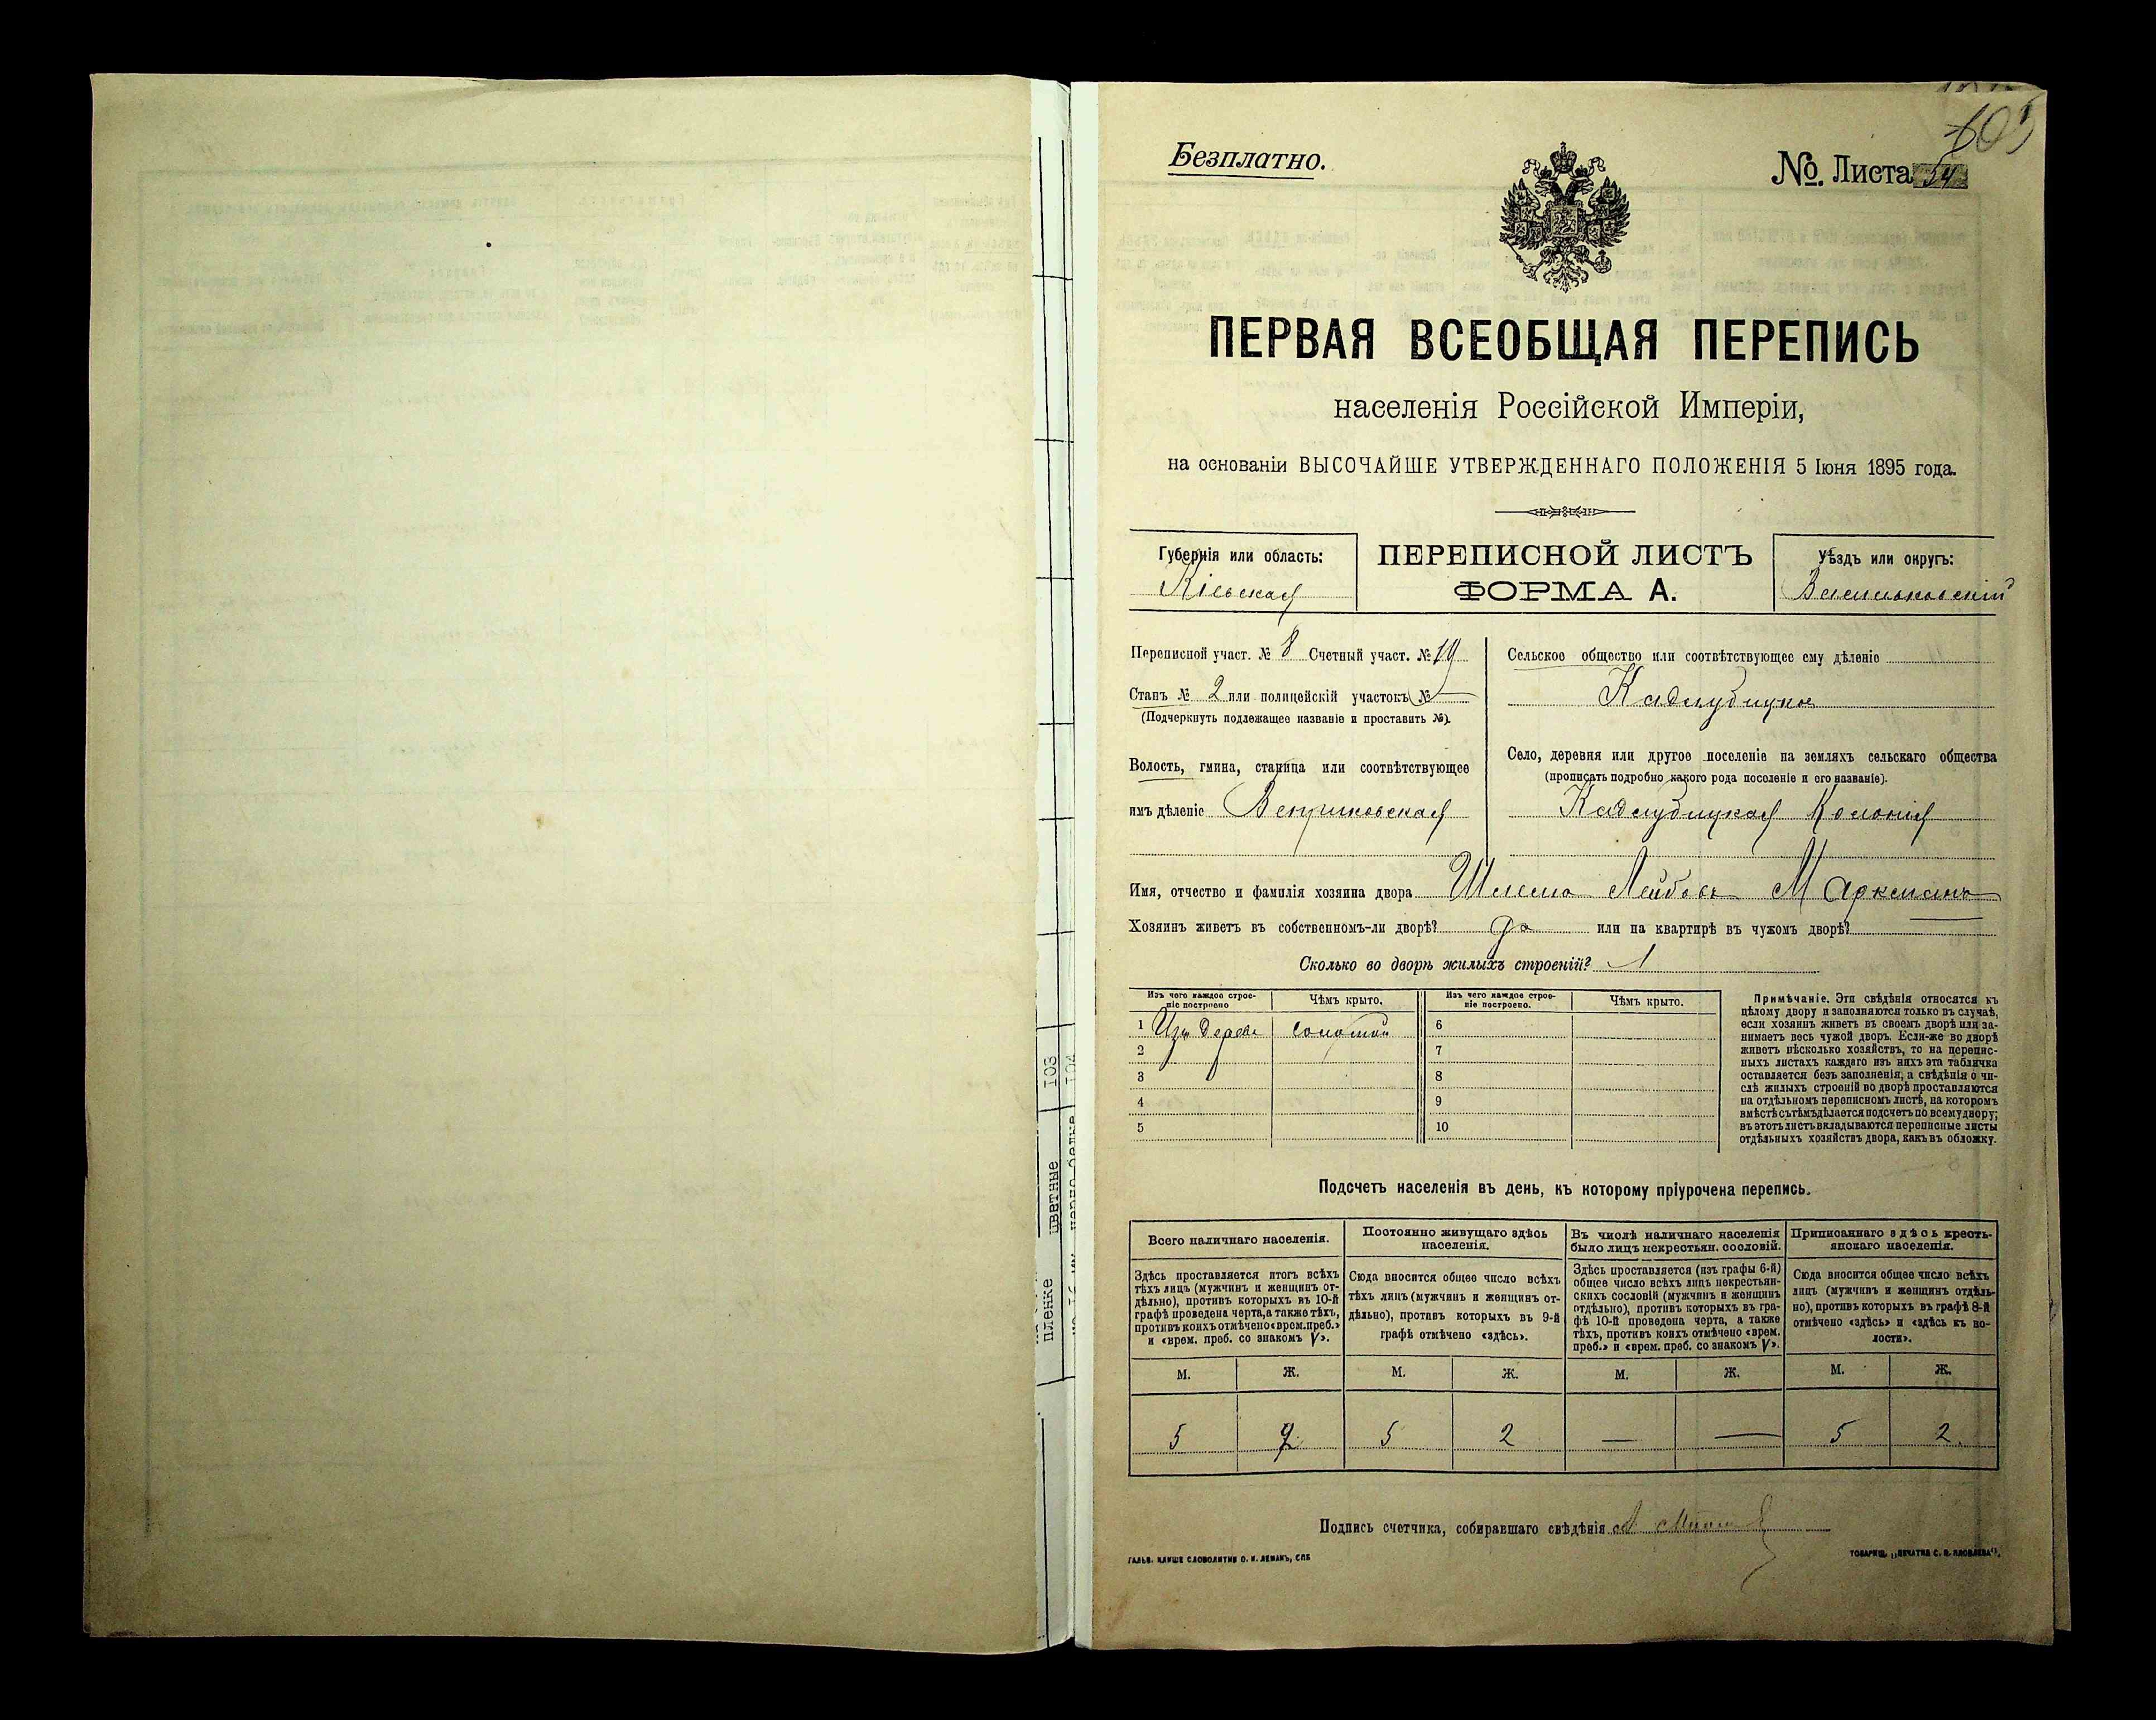 Безплатно.
№ Листа 54
ПЕРВАЯ ВСЕОБЩАЯ ПЕРЕПИСЬ
населенія Россійской Имперіи,
на основаніи ВЫСОЧАЙШЕ УТВЕРЖДЕННАГО ПОЛОЖЕНІЯ 5 Іюня 1895 года.
Губернія или область:
Кіевская
ПЕРЕПИСНОЙ ЛИСТЪ
ФОРМА А.
Уѣздъ или округъ:
Васильковскій
Переписной участ. № 8 Счетный участ. № 19
Станъ № 2 или полицейскій участокъ №
(Подчеркнуть подлежащее названіе и проставить №).
Волость, гмина, станица или соотвѣтствующее
имъ дѣленіе
Сельское общество или соотвѣтствующее ему дѣленіе
Кадлубицкое
Село, деревня или другое поселеніе на земляхъ сельскаго общества
(прописать подробно какого рода поселеніе и его названіе).
Кадлубицкая Колонія
Имя, отчество и фамилія хозяина двора Лейбовъ
Хозяинъ живетъ въ собственномъ-ли дворѣ? да или на квартирѣ въ чужомъ дворѣ?
Сколько во дворѣ жилыхъ строеній? 1
Изъ чего каждое строе-
ніе построено
Чѣмъ крыто.
Изъ чего каждое строе-
ніе построено.
Чѣмъ крыто.
1 Изъ дерева соломой
2
3
4
5
6
7
8
9
10
Примѣчаніе. Эти свѣдѣнія относятся къ
цѣлому двору и заполняются только въ случаѣ,
если хозяинъ живетъ въ своемъ дворѣ или за-
нимаетъ весь чужой дворъ. Если-же во дворѣ
живетъ нѣсколько хозяйствъ, то на перепис-
ныхъ листахъ каждаго изъ нихъ эта табличка
оставляется безъ заполненія, а свѣдѣнія о чи-
слѣ жилыхъ строеній во дворѣ проставляются
на отдѣльномъ переписномъ листѣ, на которомъ
вмѣстѣ съ тѣмъ дѣлается подсчетъ по всему двору;
въ этотъ листъ вкладываются переписные листы
отдѣльныхъ хозяйствъ двора, какъ въ обложку.
Подсчетъ населенія въ день, къ которому пріурочена перепись.
Всего наличнаго населенія.
Здѣсь проставляется итогъ всѣхъ
тѣхъ лицъ (мужчинъ и женщинъ от-
дѣльно), противъ которыхъ въ 10-й
графѣ проведена черта, а также тѣхъ,
противъ коихъ отмѣчено «врем. преб.»
и «врем. преб. со знакомъ V».
Постоянно живущаго здѣсь
населенія.
Сюда вносится общее число всѣхъ
тѣхъ лицъ (мужчинъ и женщинъ от-
дѣльно), противъ которыхъ въ 9-й
графѣ отмѣчено «здѣсь».
Въ числѣ наличнаго населенія
было лицъ некрестьян. сословій.
Здѣсь проставляется (изъ графы 6-й)
общее число всѣхъ лицъ некрестьян-
скихъ сословій (мужчинъ и женщинъ
отдѣльно), противъ которыхъ въ гра-
фѣ 10-й проведена черта, а также
тѣхъ, противъ коихъ отмѣчено «врем.
преб.» и «врем. преб. со знакомъ V».
Приписаннаго здѣсь кресть-
янскаго населенія.
Сюда вносится общее число всѣхъ
лицъ (мужчинъ и женщинъ отдѣль-
но), противъ которыхъ въ графѣ 8-й
отмѣчено «здѣсь» и «здѣсь къ во-
лости».
М. Ж. М. Ж. М. Ж. М. Ж.
5 2 5 2 — — 5 2
Подпись счетчика, собиравшаго свѣдѣнія
ГАЛЬВ. КЛИШЕ СЛОВОЛИТНИ О. И. ЛЕМАНЪ, СПБ
ТОВАРИЩ. „ПЕЧАТНЯ С. П. ЯКОВЛЕВА“.
пленке цветные 103
104